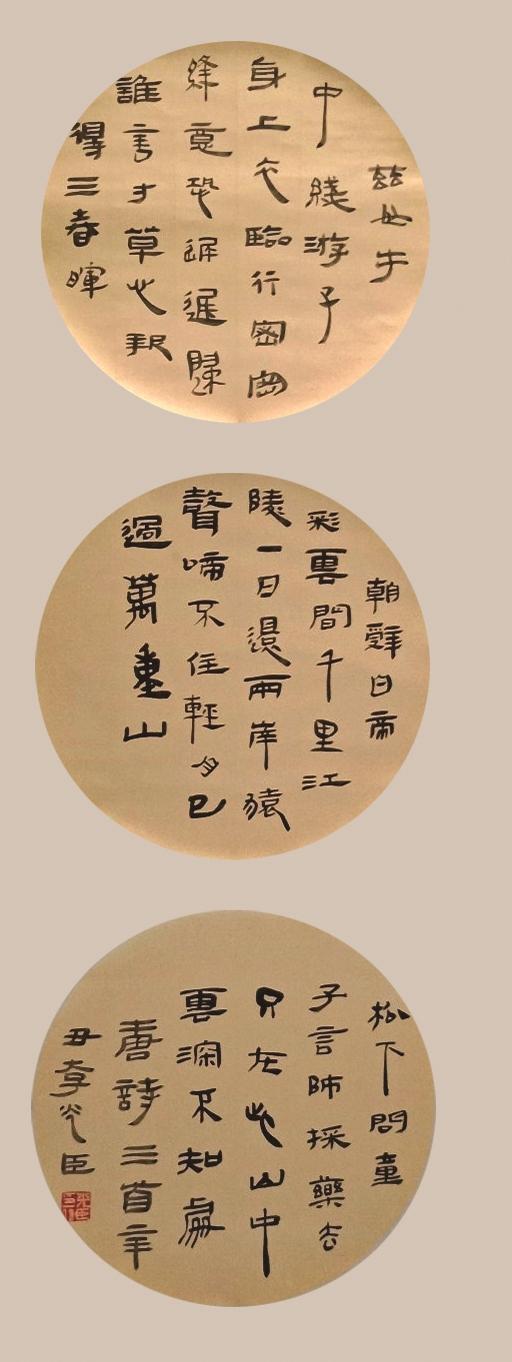 慈母手
中綫游子
身上衣臨行密密
縫意恐遲遲歸
誰言寸草心報
得三春暉
朝辭白帝
彩雲間千里江
陵一日還兩岸猿
聲啼不住輕舟已
過萬重山
松下問童
子言師採藥去
只在此山中
雲深不知處
唐詩三首辛
丑李光臣